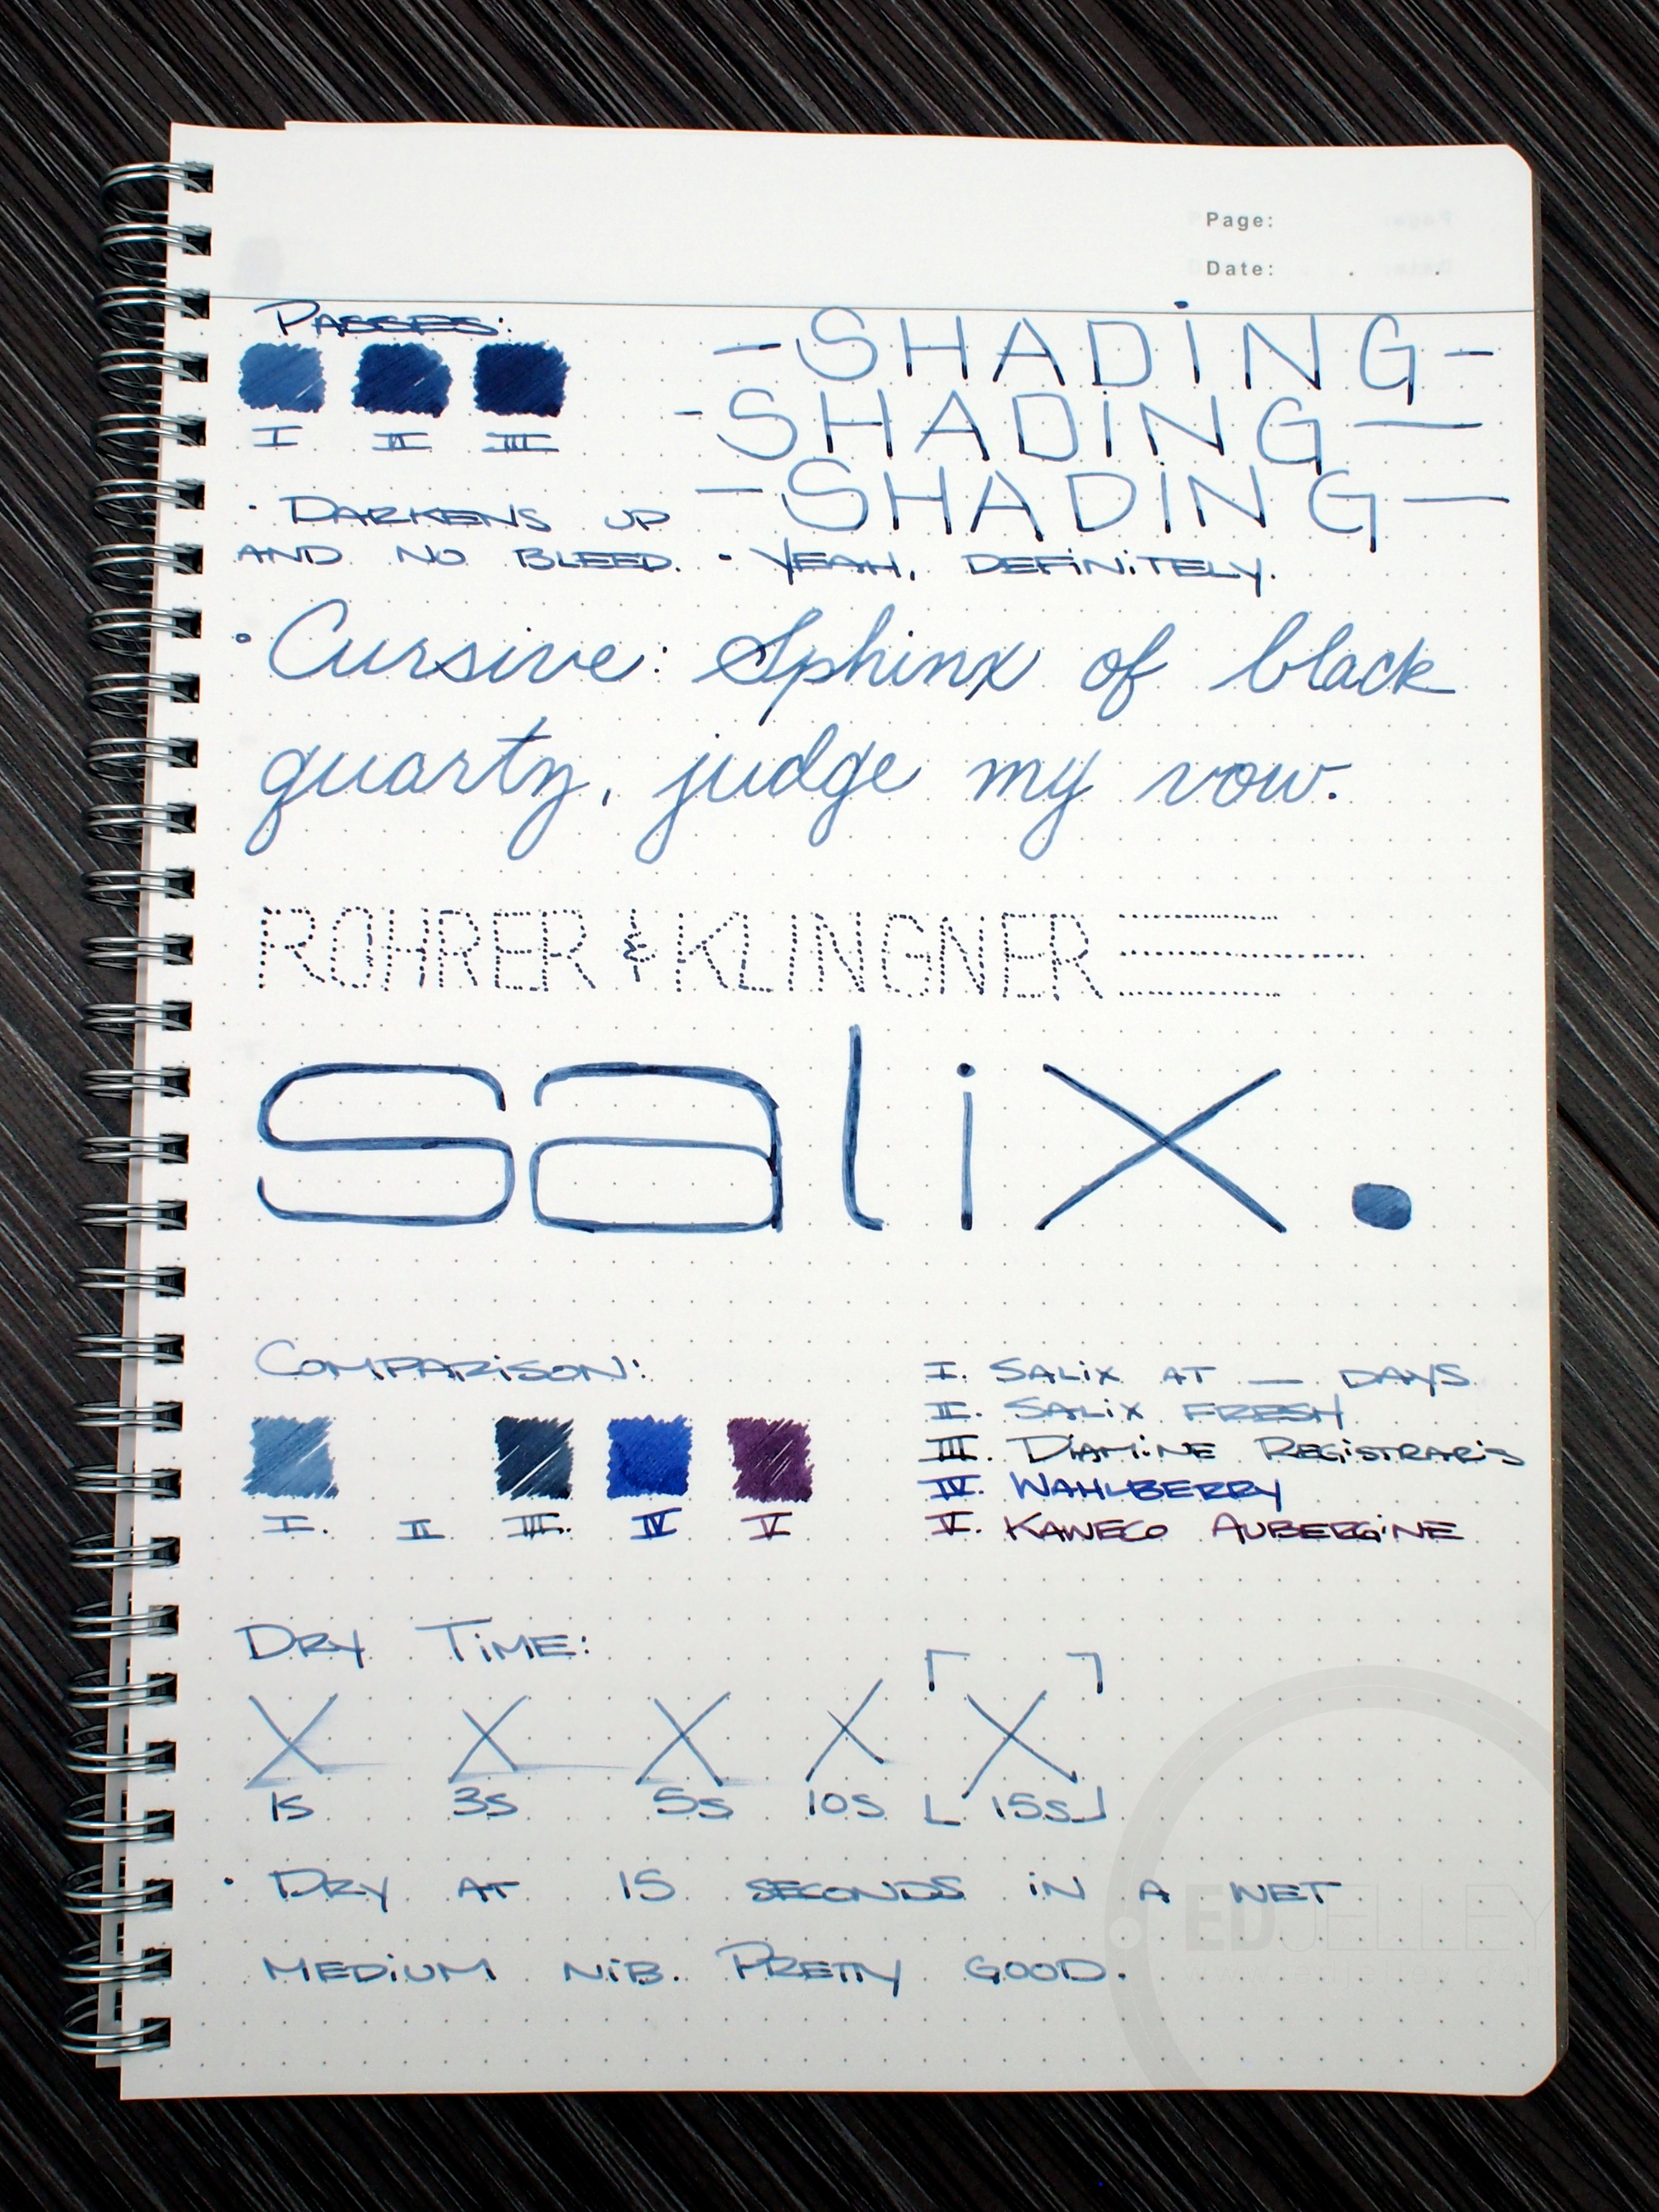 Page:
Date: . .
PASSES:
I II III
-SHADiNG-
-SHADiNG-
-SHADiNG-
· DARKENS UP
AND NO BLEED. · YEAH, DEFiNiTELY.
· Cursive: Sphinx of black
quartz, judge my vow.
ROHRER & KLINGNER
salix.
COMPARiSON:
I. II III. IV V
I. SALiX AT __ DAYS
II. SALiX FRESH
III. DiAMiNE REGiSTRARiS
IV. WAHLBERRY
V. KAWECO AUBERGiNE
DRY TiME:
X X X X X
1S 3S 5S 10S 15S
· DRY AT 15 SECONDS iN A WET
MEDiUM NiB. PRETTY GOOD.
EDJELLEY